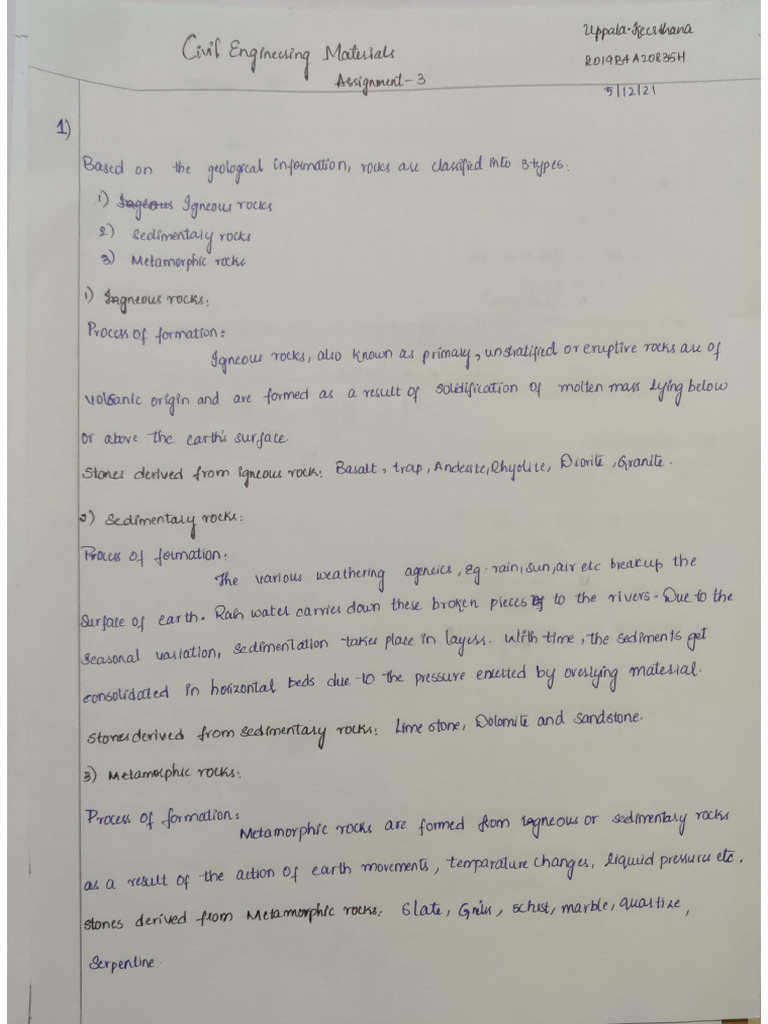 Civil Engineering Materials
Assignment-3
Uppala.
R019BAA20835H
5/12/21
1)
Based on the geological information, rocks are classified into 3 types:
1) Igneous rocks
2) Sedimentary rocks
3) Metamorphic rocks
1) Igneous rocks:
Process of formation:
Igneous rocks, also known as primary, unstratified or eruptive rocks are of
volcanic origin and are formed as a result of solidification of molten mass lying below
or above the earth's surface.
Stones derived from igneous rock: Basalt, trap, Andesite, Rhyolite, Diorite, Granite.
2) Sedimentary rocks:
Process of formation:
The various weathering agencies, eg: rain, sun, air etc break up the
surface of earth. Rain water carries down these broken pieces to the rivers. Due to the
seasonal variation, sedimentation takes place in layers. With time, the sediments get
consolidated in horizontal beds due to the pressure exerted by overlying material.
Stones derived from sedimentary rocks: Lime stone, Dolomite and Sandstone.
3) Metamorphic rocks:
Process of formation:
Metamorphic rocks are formed from igneous or sedimentary rocks
as a result of the action of earth movements, temparature changes, liquid pressures etc.
Stones derived from Metamorphic rocks: Slate, Gneiss, schist, marble, quartize,
Serpentine.